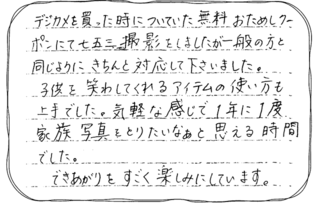 デジカメを買った時についていた無料おためしクー
ポンにて七五三撮影をしましたが一般の方と
同じようにきちんと対応して下さいました。
子供を笑わしてくれるアイテムの使い方も
上手でした。気軽な感じで1年に1度
家族写真をとりたいなぁと思える時間
でした。
できあがりをすごく楽しみにしています。